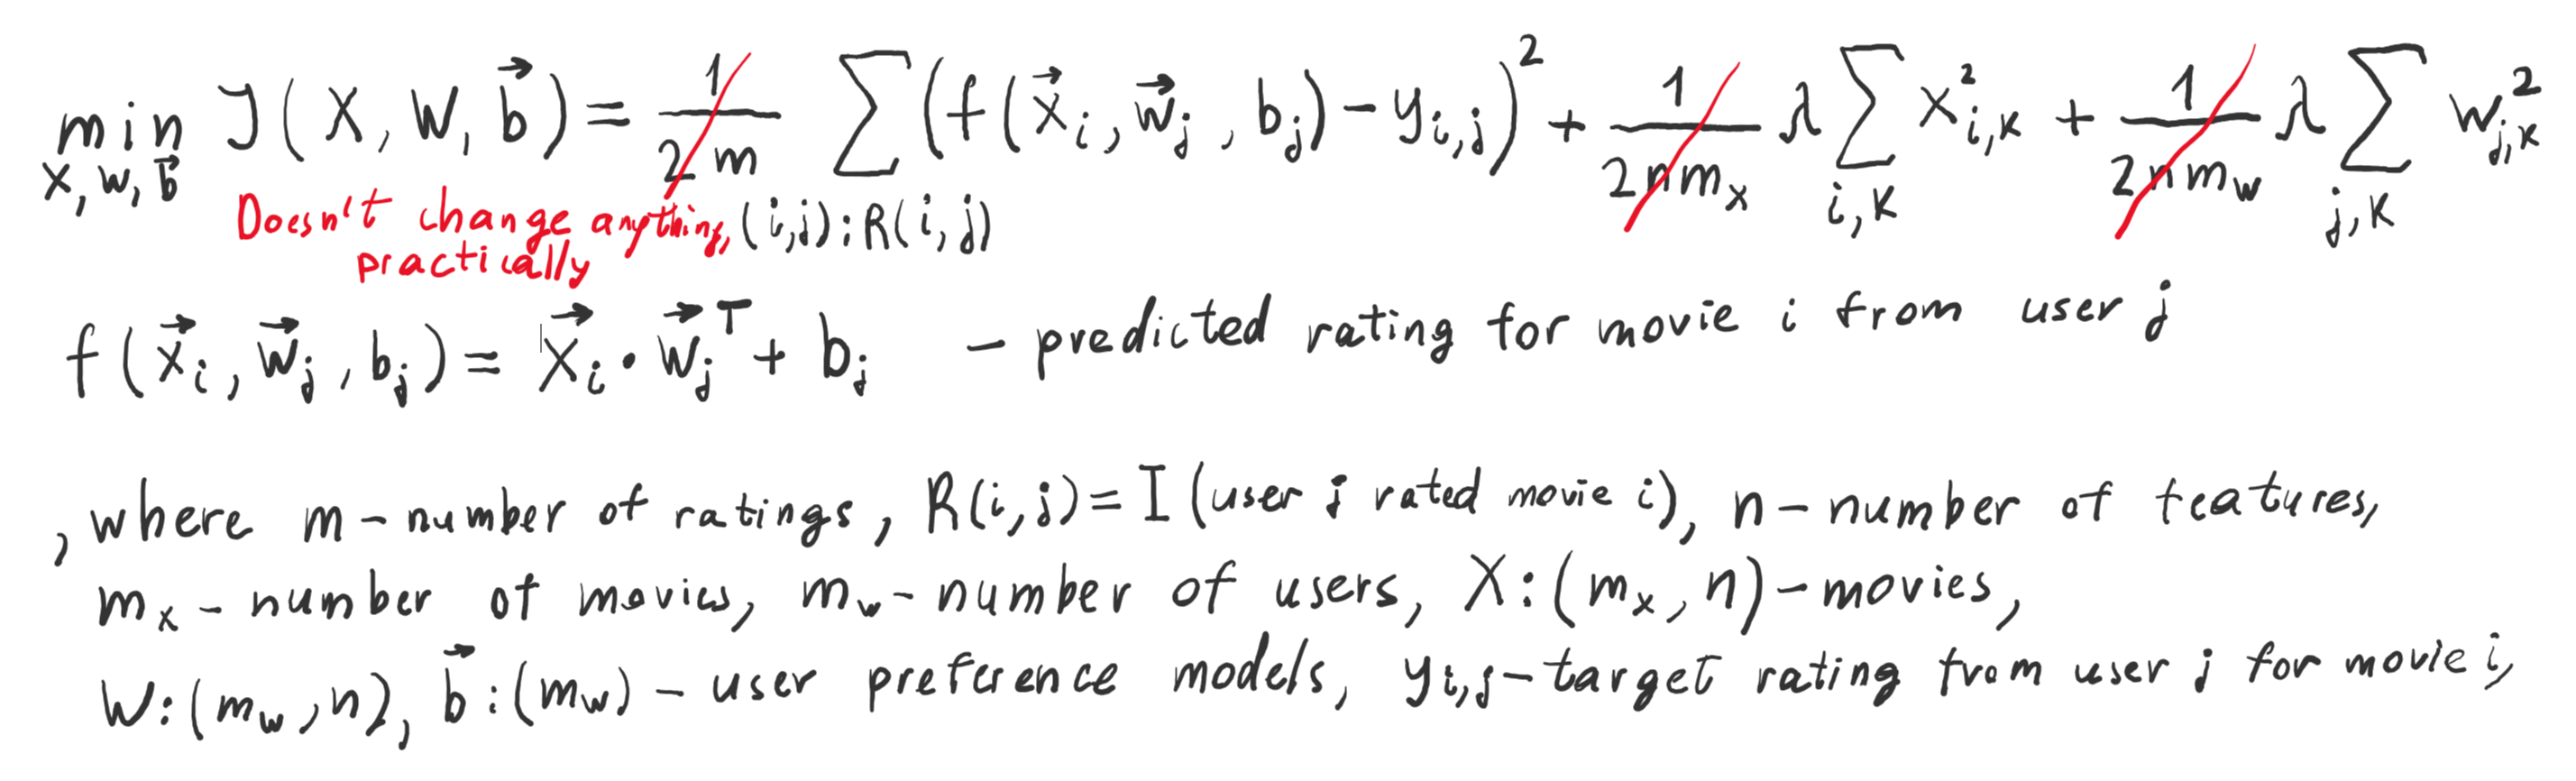 min J(X, W, b⃗) = 1/(2m) ∑ (f(x⃗ᵢ, w⃗ⱼ, bⱼ) - yᵢ,ⱼ)² + 1/(2nmₓ) λ ∑ x²ᵢ,ₖ + 1/(2nm_w) λ ∑ w²ⱼ,ₖ
X, W, b⃗ (i,j):R(i,j) i,k j,k
Doesn't change anything,
practically
f(x⃗ᵢ, w⃗ⱼ, bⱼ) = x⃗ᵢ · w⃗ⱼᵀ + bⱼ - predicted rating for movie i from user j
, where m - number of ratings, R(i,j) = I (user j rated movie i), n - number of features,
mₓ - number of movies, m_w - number of users, X:(mₓ, n) - movies,
W:(m_w, n), b⃗:(m_w) - user preference models, yᵢ,ⱼ - target rating from user j for movie i,